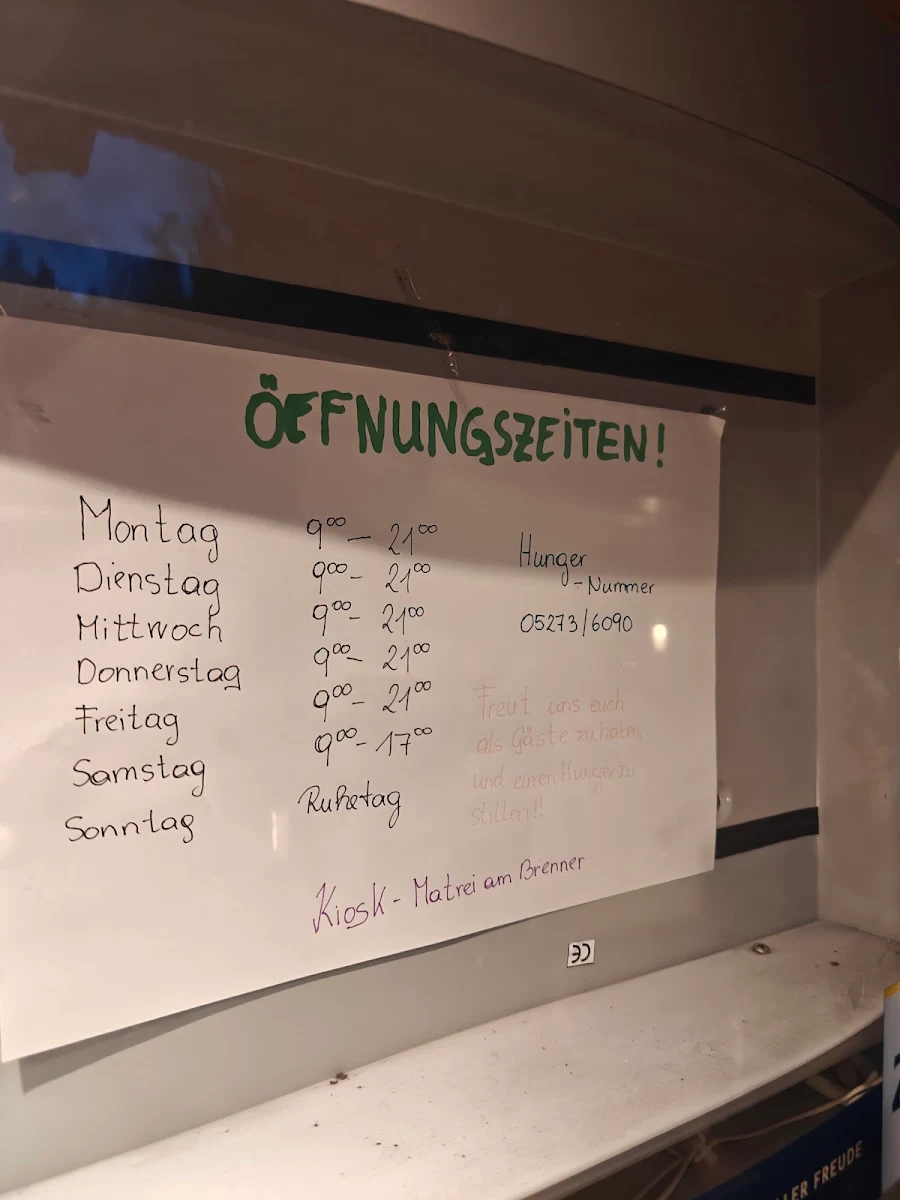 ÖFFNUNGSZEITEN!
Montag 9⁰⁰ – 21⁰⁰
Dienstag 9⁰⁰ – 21⁰⁰
Mittwoch 9⁰⁰ – 21⁰⁰
Donnerstag 9⁰⁰ – 21⁰⁰
Freitag 9⁰⁰ – 21⁰⁰
Samstag 9⁰⁰ – 17⁰⁰
Sonntag Ruhetag
Hunger
- Nummer
05273/6090
Freut uns euch
als Gäste zu haben,
und euren Hunger zu
stillen!!
Kiosk - Matrei am Brenner
CE
LER FREUDE